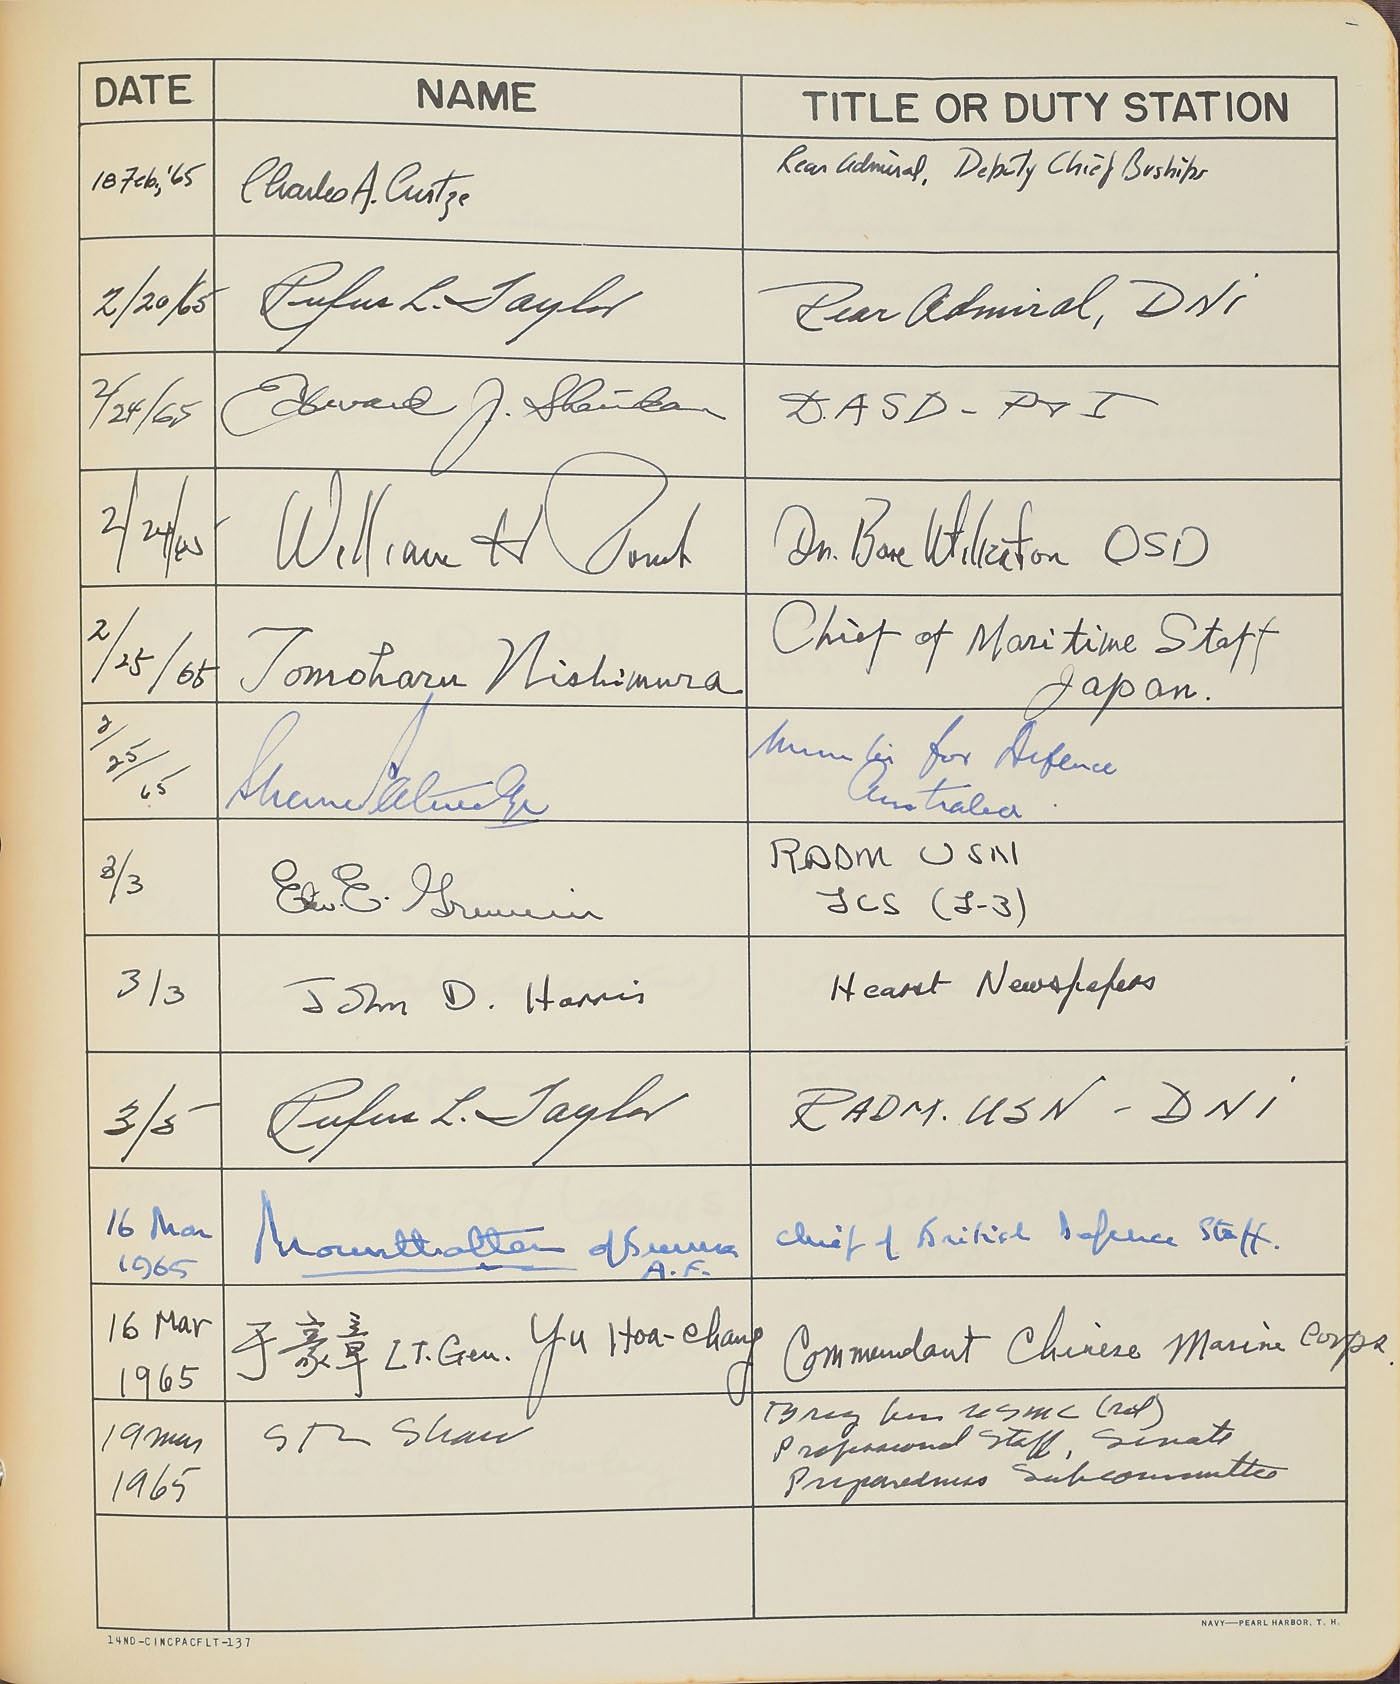 DATE NAME TITLE OR DUTY STATION
18 Feb, '65 Charles A. Curtze Rear Admiral, Deputy Chief Buships
2/20/65 Rufus L. Taylor Rear Admiral, DNI
2/24/65 Edward J. Sheridan D.ASD - P&I
2/24/65 William H Dn. Base Utilization OSD
2/25/65 Tomoharu Nishimura Chief of Maritime Staff
Japan.
2/25/65 Shane Paltridge Minister for Defence
Australia
3/3 Edw. E. RADM USN
JCS (J-3)
3/3 John D. Harris Hearst Newspapers
3/5 Rufus L. Taylor RADM. USN - DNI
16 Mar
1965 Mountbatten of Burma
A.F. Chief of British Defence Staff.
16 Mar
1965 于豪章 LT. Gen. Yu Hoa-chang Commandant Chinese Marine Corps.
19 Mar
1965 S R Shaw Brig Gen USMC (ret)
Professional Staff, Senate
Preparedness Subcommittee
14ND-CINCPACFLT-137 NAVY—PEARL HARBOR, T. H.